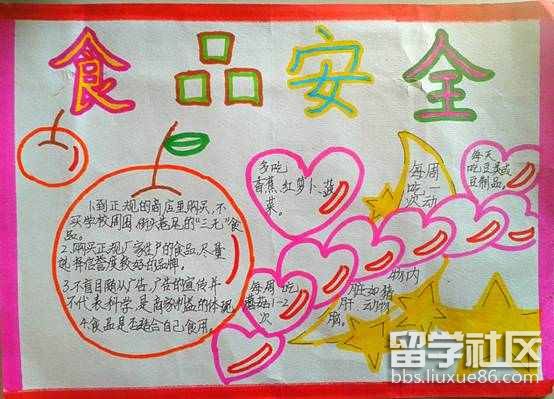 食品安全
1.到正规的商店里购买,不
买学校周围、街头巷尾的"三无"食
品。
2.购买正规厂家生产的食品,尽量
选择信誉度较好的品牌。
3.不盲目随从广告,广告的宣传并
不代表科学,是商家利益的体现
4.食品是否适合自己食用。
多吃
香蕉、红萝卜、蔬
菜。
每周
吃一
次动
物内
脏如猪
肝、动物
脑。
每天
吃豆类或
豆制品。
每周吃
蘑菇1-2
次
留学社区
bbs.liuxue86.com